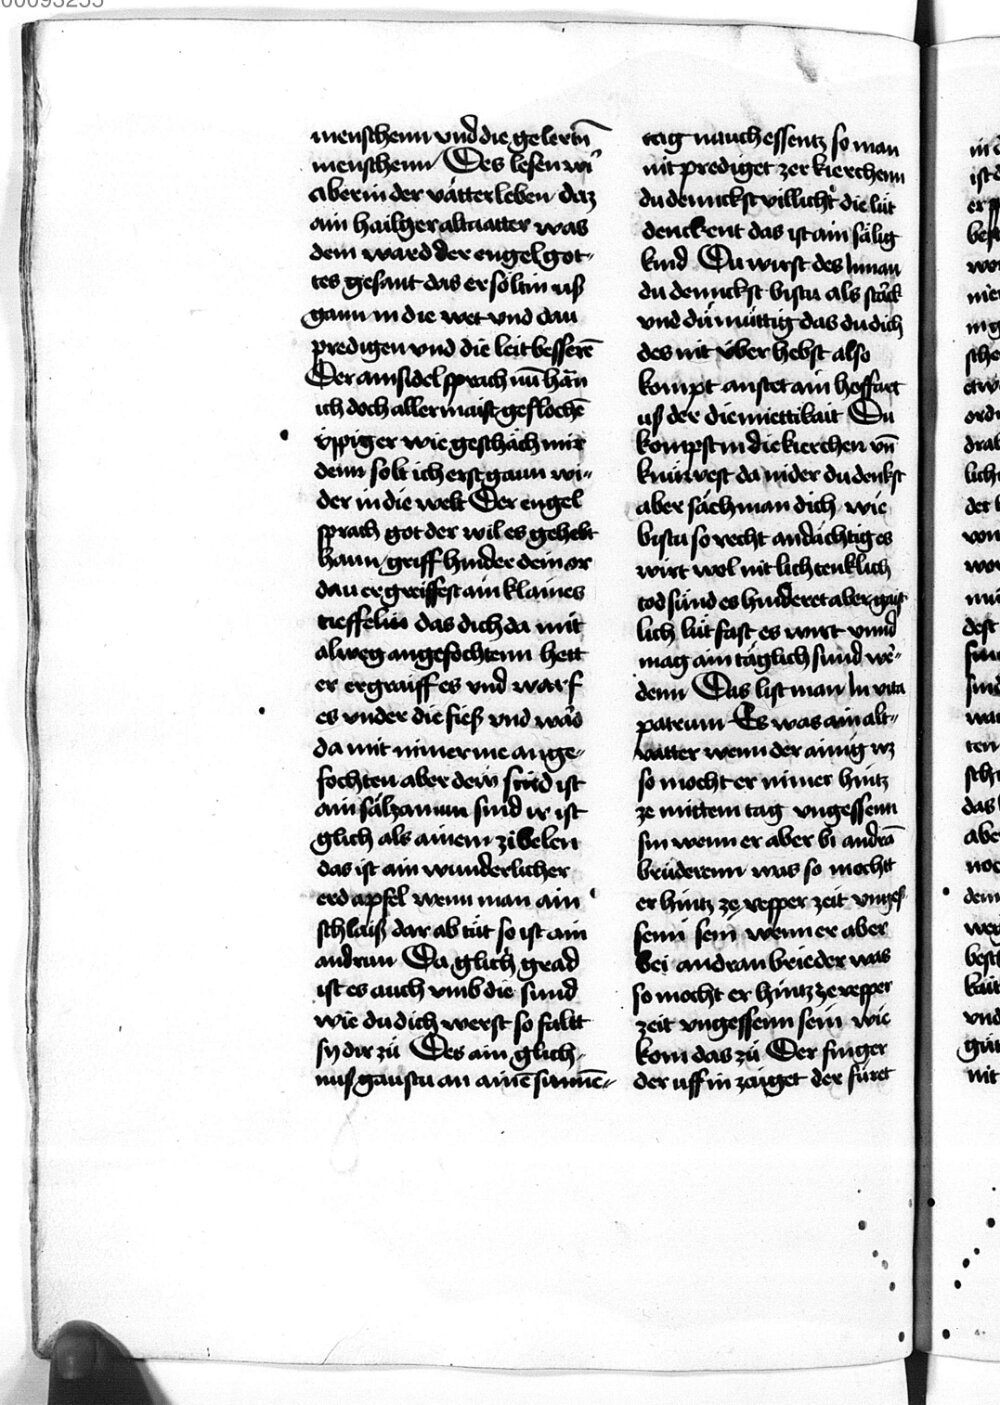 00095255
menschenn vnd die gelertn̄
menschenn Des lesen wir̄
aber in der vätter leben daz
ain hailger altuatter was
dem ward der engel got-
tes gesant das er söltin uß
gann in die welt vnd dau
predigen vnd die leit besserē
Der ainsidel sprach nū hān
ich doch aller maist geflochē
v̈ppiger wie geschäch mir
denn solt ich erst gaun wi-
der in die welt Der engel
sprach got der wil es gehebt
haun griff hinder dein or
dau ergreiffest ain klaines
tieffelin das dich da mit
alweg angefochtenn hett
er ergraiff es vnd warf
es vnder die fieß vnd ward
da mit nimer me ange-
fochten aber dein sünd ist
ain sälzamun sünd ir ist
glich als ainem zibelen
das ist ain wunderlicher
erd apfel wenn man ain
schlaiß dar ab tüt so ist ain
andrun Da glich grad
ist es auch vmb die sünd
wie du dich werst so faltt
sy dir zü Des ain glich-
nus gaustu an ainē sunnē-
tag nauch essentz so man
nit prediget zer kierchenn
du dennckst villicht die lüt
denckent das ist ain sälig
kind Du wirst des innan
du dennckst bistu als starck
vnd dümüttig das du dich
des nit über hebst also
kompt anstet ain hoffart
uß der diemiettikait Du
kompst in die kierchen vn̄
knüwest da nider du denkst
aber sächman dich wie
bistu so recht andächtig es
wirt wol nit lichtenklich
tod sünd es hinderet aber gaist
lich lüt fast es wirt vnnd
mag ain täglich sund wer-
denn Das list man in vita
patrum Es was ain alt-
vatter wenn der ainig wz
so mocht er nimer hintz
ze mittem tag vngessenn
sin wenn er aber bi andrā
brüderenn was so mochtt
er hintz ze vesper zeit vnges
senn sein wenn er aber
bei andran brieder was
so mocht er hintz ze vesper
zeit vngessenn sein wie
kom das zü Der finger
der uff in zaiget der füret